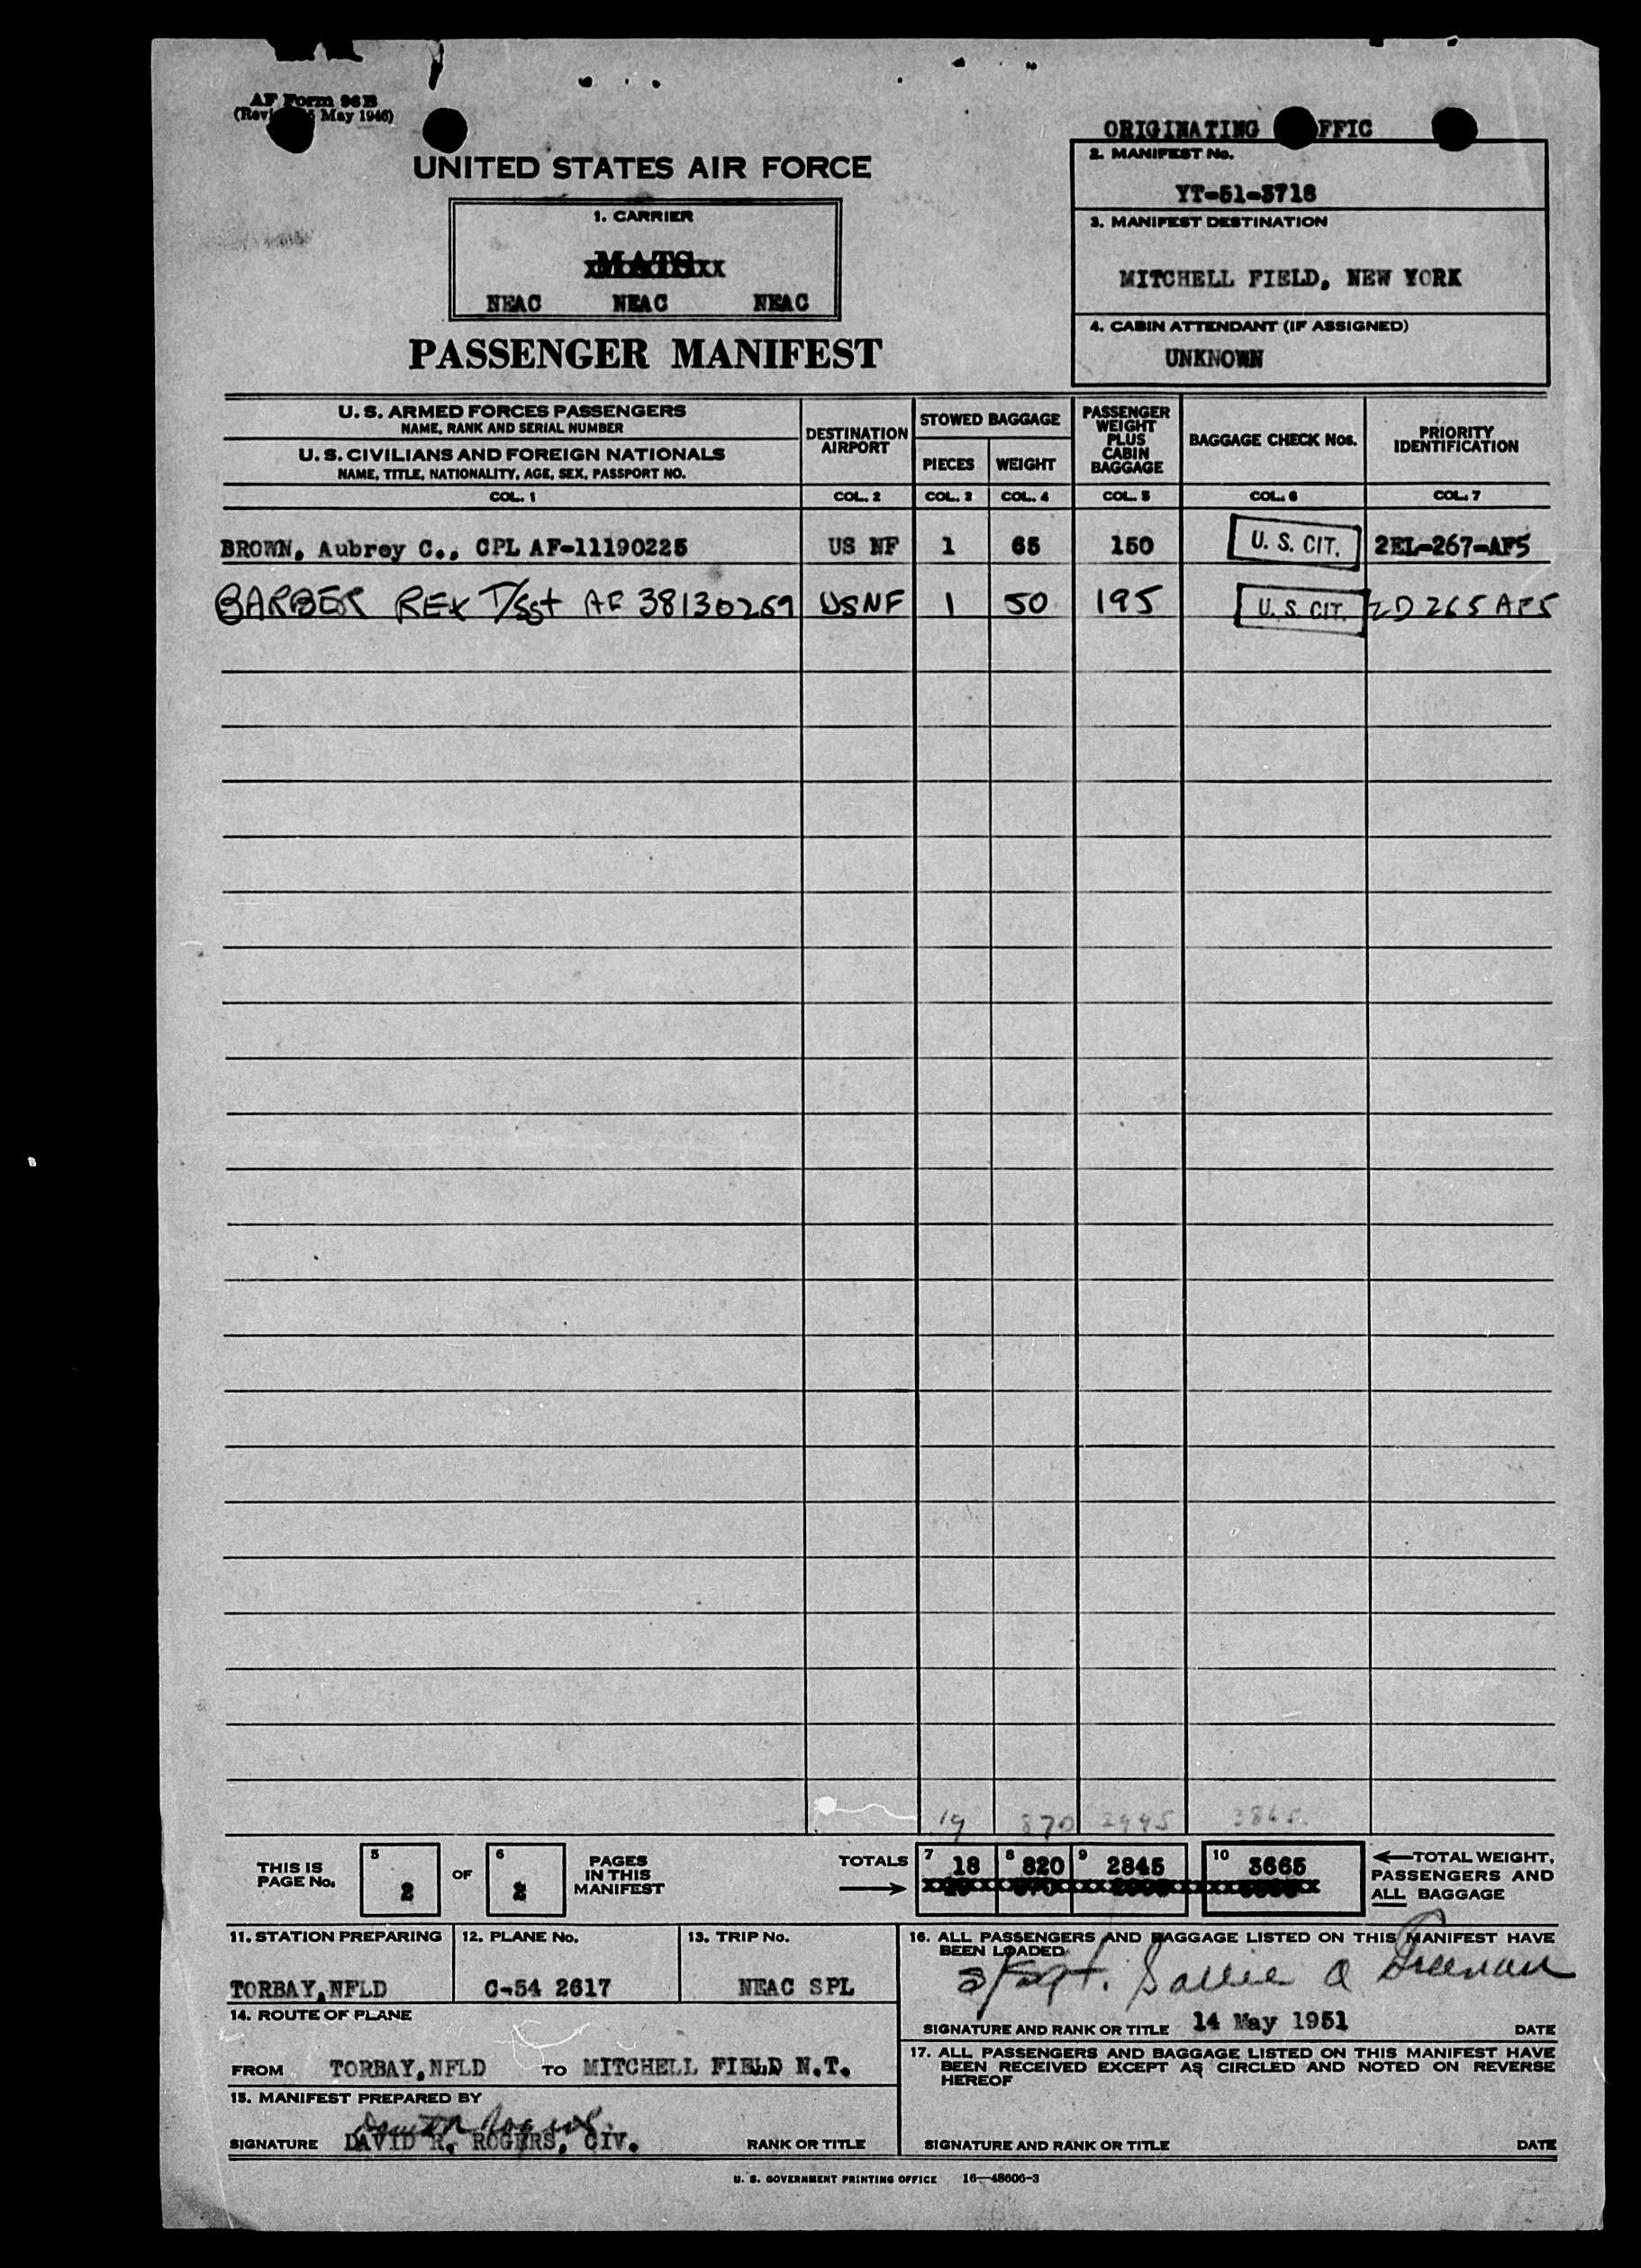 AF Form 96B
(Revi 5 May 1946)
UNITED STATES AIR FORCE
1. CARRIER
MATS
NEAC NEAC NEAC
PASSENGER MANIFEST
ORIGINATING FFIC
2. MANIFEST No.
YT-51-3718
3. MANIFEST DESTINATION
MITCHELL FIELD, NEW YORK
4. CABIN ATTENDANT (IF ASSIGNED)
UNKNOWN
U. S. ARMED FORCES PASSENGERS
NAME, RANK AND SERIAL NUMBER
U. S. CIVILIANS AND FOREIGN NATIONALS
NAME, TITLE, NATIONALITY, AGE, SEX, PASSPORT NO.
COL. 1
DESTINATION
AIRPORT
COL. 2
STOWED BAGGAGE
PIECES WEIGHT
COL. 3 COL. 4
PASSENGER
WEIGHT
PLUS
CABIN
BAGGAGE
COL. 5
BAGGAGE CHECK Nos.
COL. 6
PRIORITY
IDENTIFICATION
COL. 7
BROWN, Aubrey C., CPL AF-11190225 US NF 1 65 150 U. S. CIT. 2EL-267-AF5
BARBER REX T/Sgt AF 38130259 USNF 1 50 195 U. S. CIT. 2D 265 AF5
19 870 2995 3865
THIS IS
PAGE No.
5
2
OF
6
2
PAGES
IN THIS
MANIFEST
TOTALS
7 18 8 820 9 2845 10 3665
TOTAL WEIGHT,
PASSENGERS AND
ALL BAGGAGE
11. STATION PREPARING
TORBAY, NFLD
12. PLANE No.
C-54 2617
13. TRIP No.
NEAC SPL
14. ROUTE OF PLANE
FROM TORBAY, NFLD TO MITCHELL FIELD N.Y.
15. MANIFEST PREPARED BY
SIGNATURE DAVID R. ROGERS, CIV. RANK OR TITLE
16. ALL PASSENGERS AND BAGGAGE LISTED ON THIS MANIFEST HAVE
BEEN LOADED
S/Sgt. Sallie A Freeman
SIGNATURE AND RANK OR TITLE 14 May 1951 DATE
17. ALL PASSENGERS AND BAGGAGE LISTED ON THIS MANIFEST HAVE
BEEN RECEIVED EXCEPT AS CIRCLED AND NOTED ON REVERSE
HEREOF
SIGNATURE AND RANK OR TITLE DATE
U. S. GOVERNMENT PRINTING OFFICE 16—48606-3